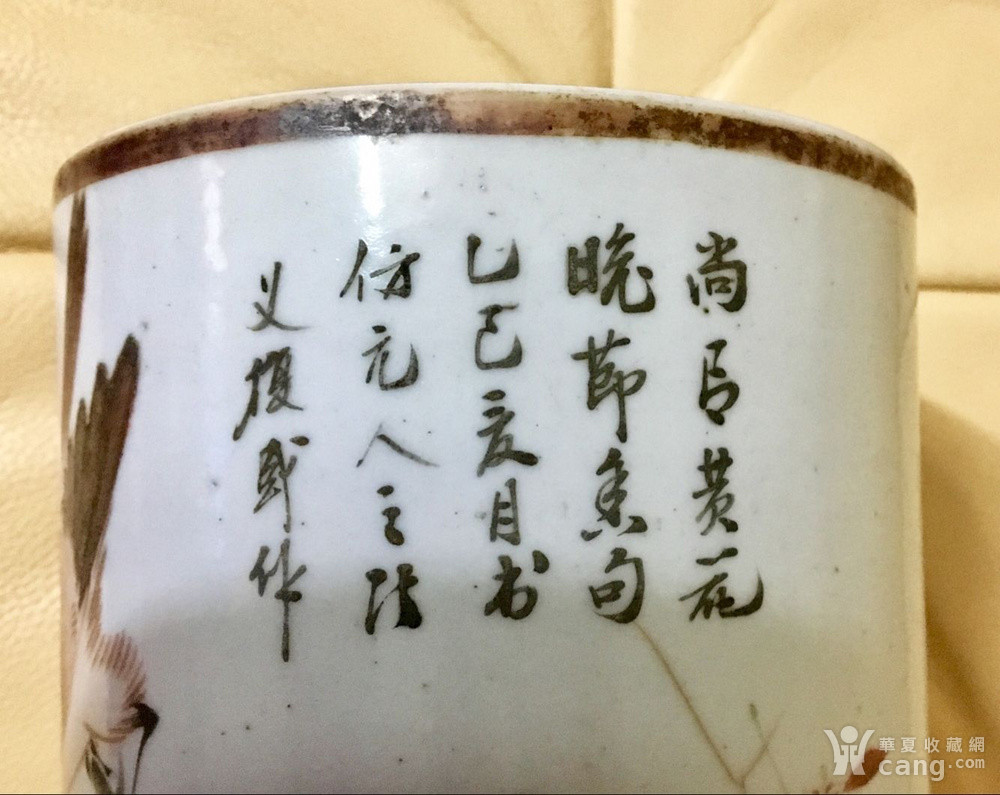 尚有黄花
晚节香句
乙巳亥月书
仿元人之法
义復盛作
華夏收藏網
cang.com